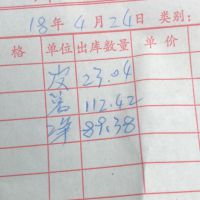 18年4月24日 类别:
格 单位 出库数量 单价
皮 23.04
总 112.42
净 89.38